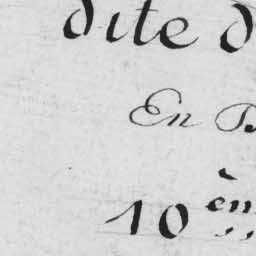 dite d
En B
10 èm